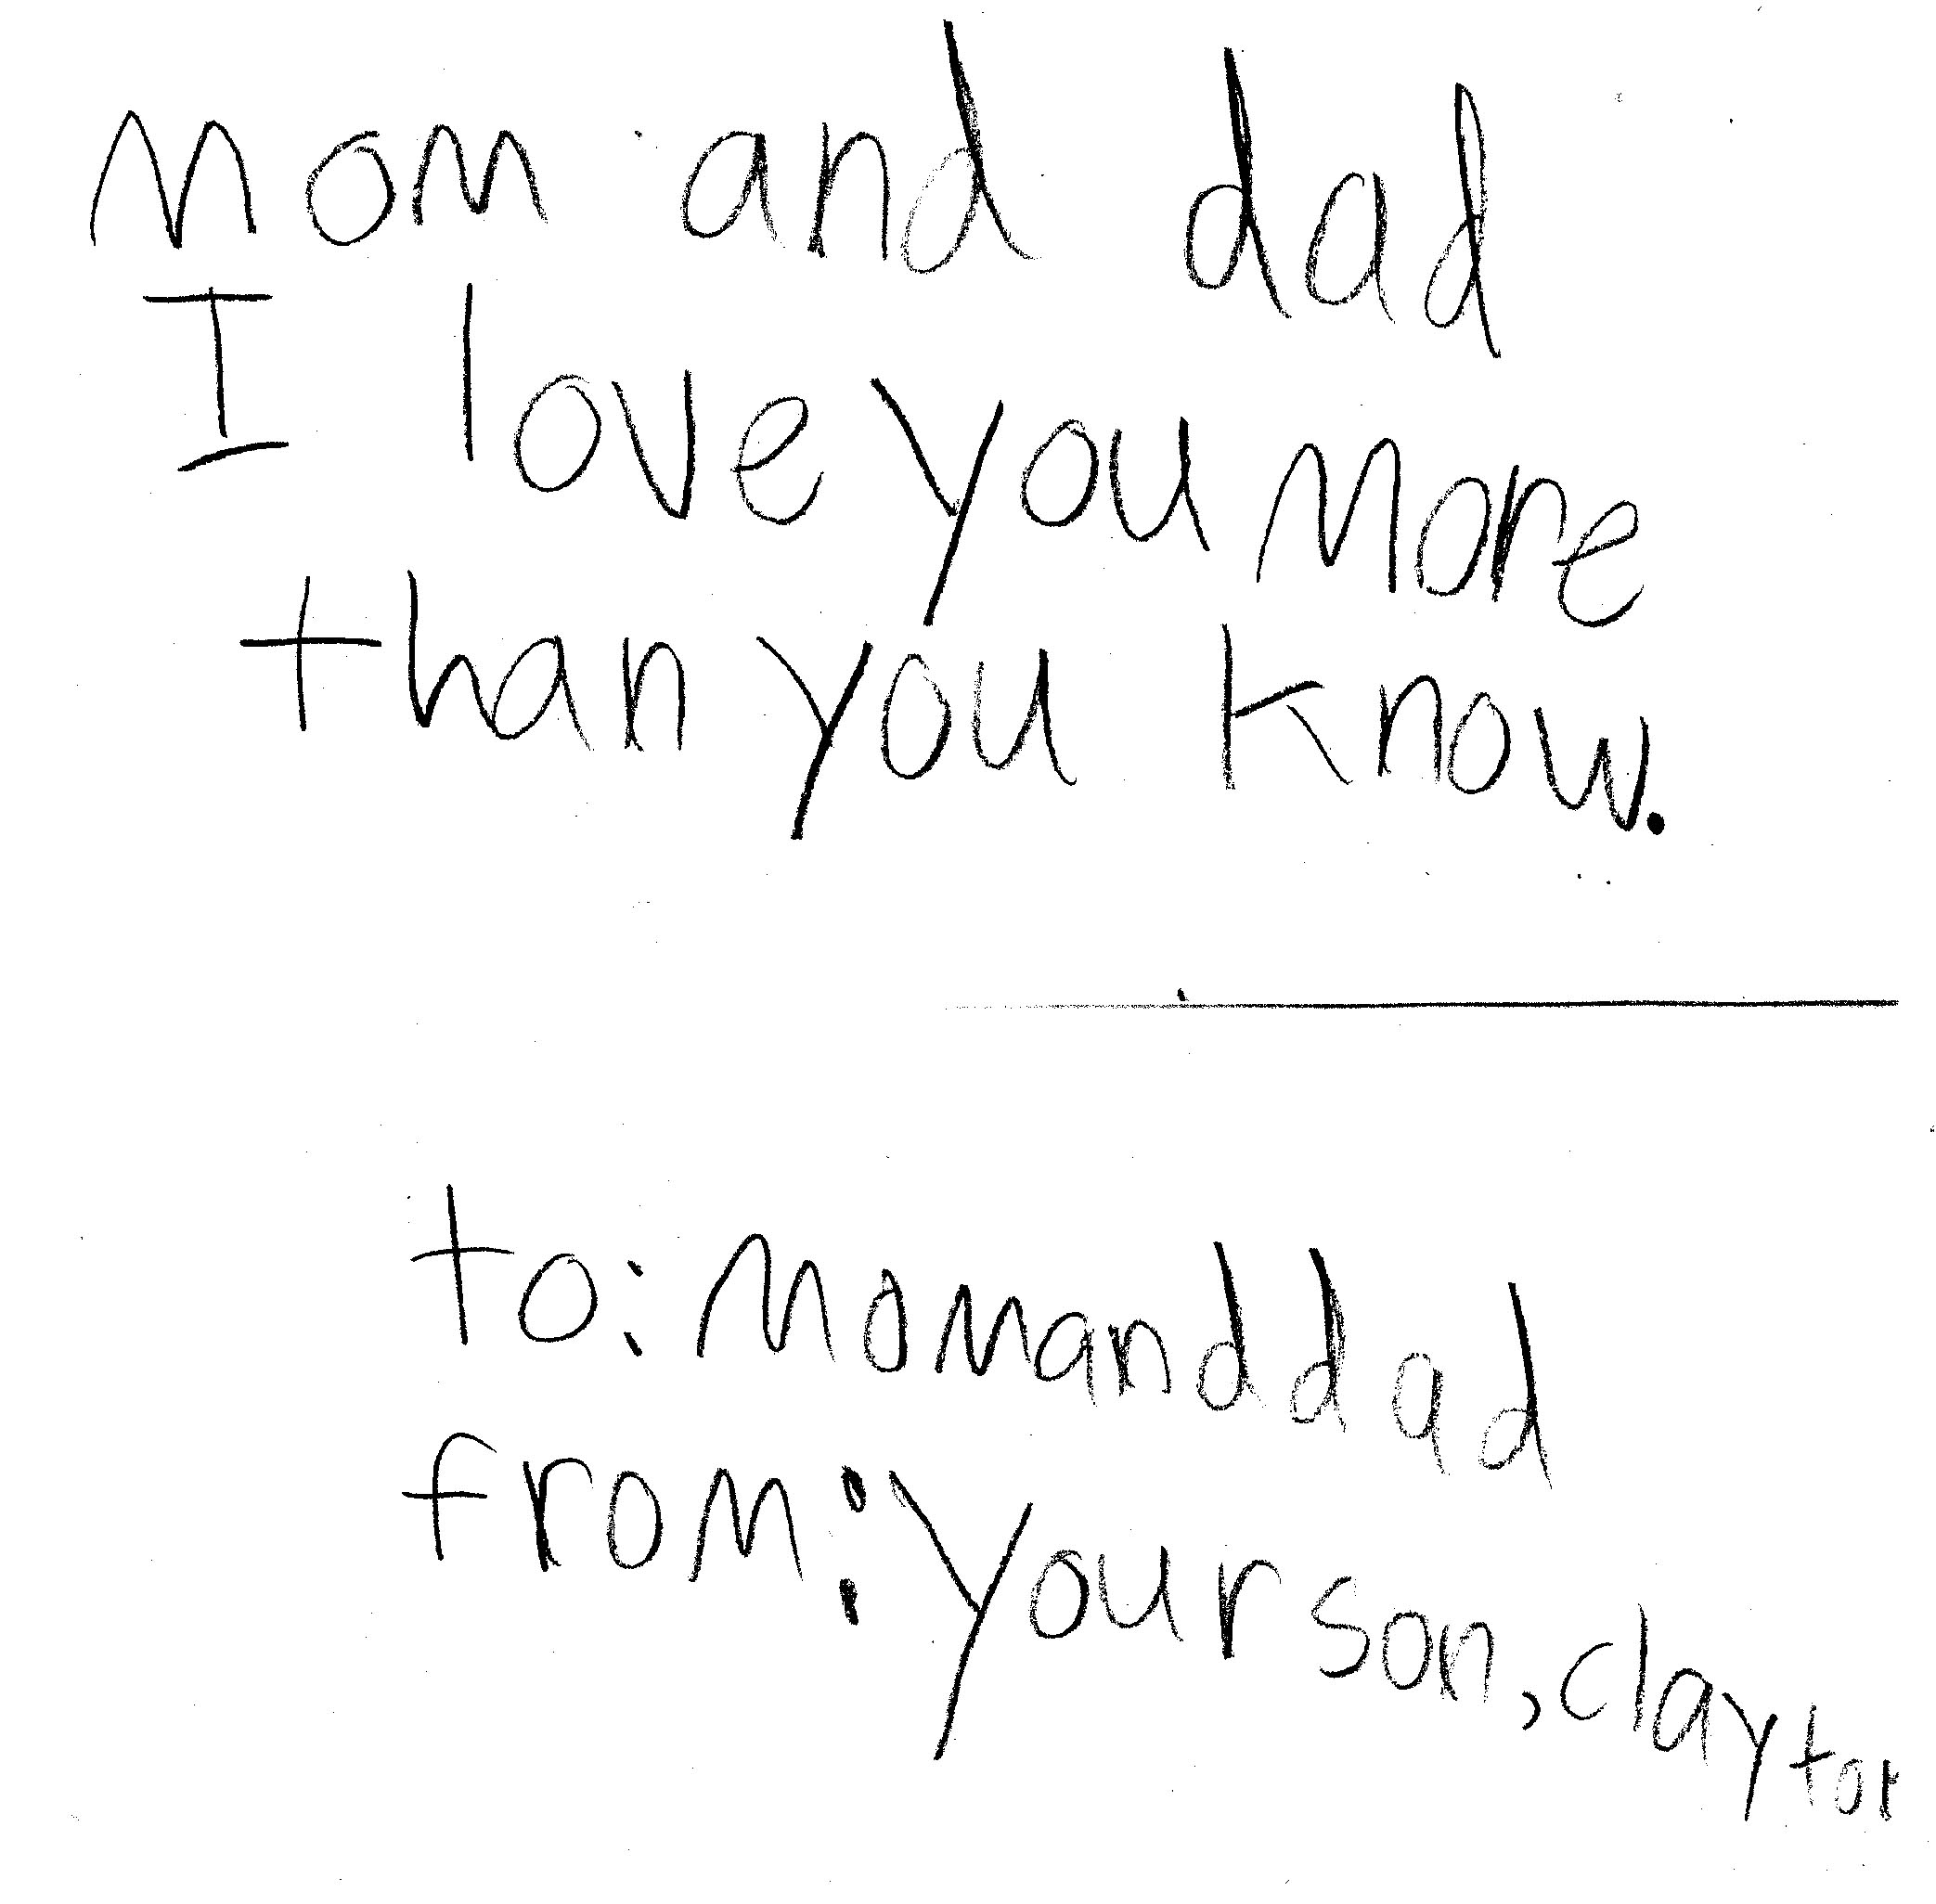 Mom and dad
I love you more
than you know.
to: Mom and dad
from: your son, clayton